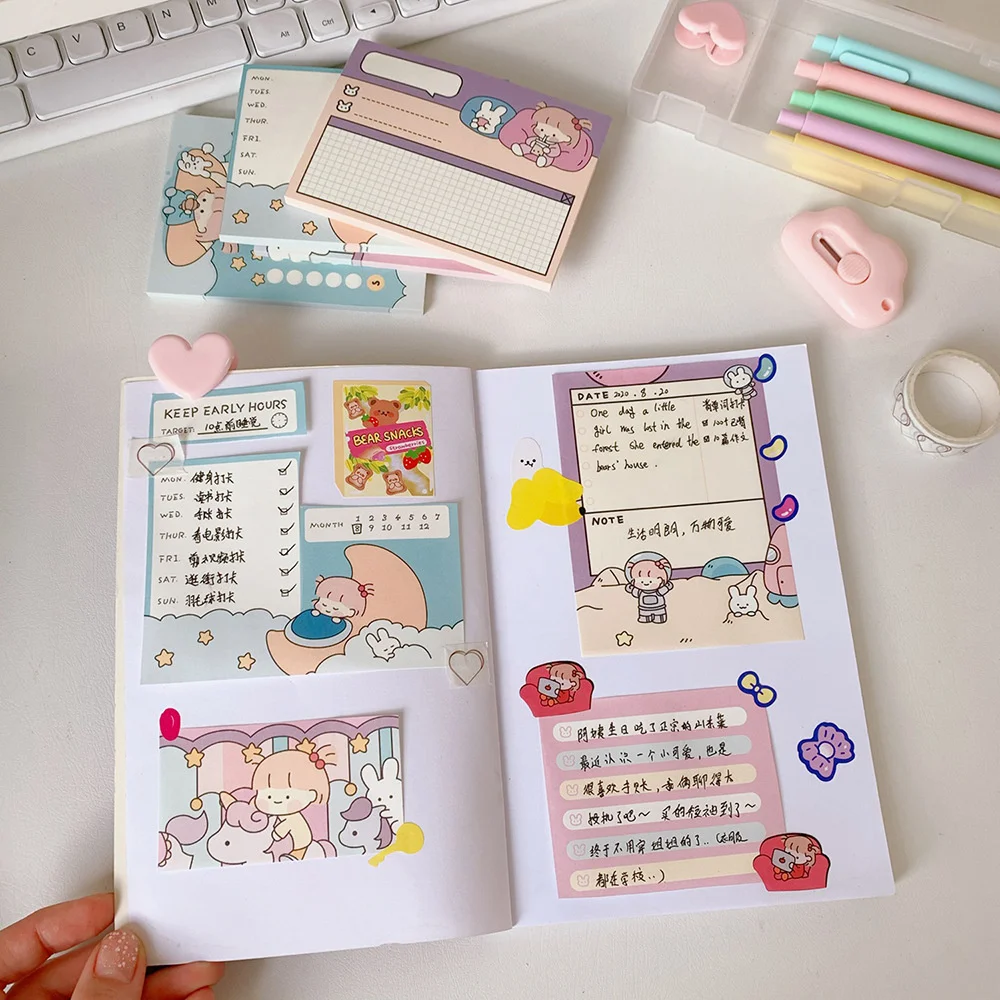 C V B N M
Alt Ctrl Alt
MON.
TUES.
WED.
THUR.
FRI.
SAT.
SUN.
S
KEEP EARLY HOURS
TARGET: 10点前睡觉
MON. 健身打卡
TUES. 读书打卡
WED. 手账打卡
THUR. 看电影打卡
FRI. 剪视频打卡
SAT. 逛街打卡
SUN. 羽毛球打卡
BEAR SNACKS
Strawberries
MONTH 1 2 3 4 5 6 7
8 9 10 11 12
DATE 2020.8.20
One day a little
girl was lost in the
forest she entered the
bears' house.
背单词打卡
100个已背
10篇作文
NOTE
生活明朗，万物可爱
阿姨生日吃了正宗的山东菜
最近认识一个小可爱，也是
很喜欢手账，亲俩聊得太
投机了吧～ 买的短袖到了～
终于不用穿姐姐的了..(衣服
都在学校..)